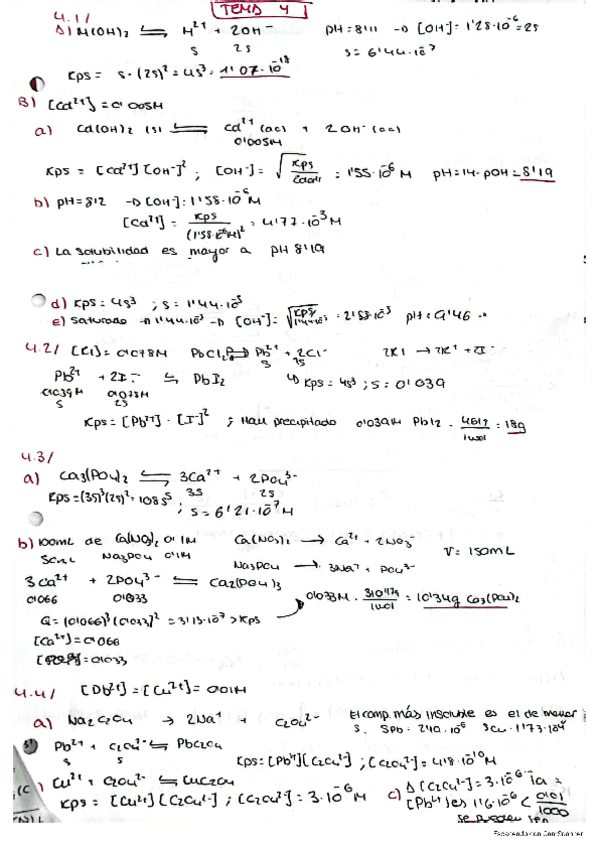 TEMA 4
4.1/
A) M(OH)2 ⇌ M2+ + 2OH- pH=8'11 → [OH-]=1'28·10^-6=2S
S 2S S=6'44·10^-7
Kps = S·(2S)^2=4S^3=1'07·10^-18
B) [Cd2+]=0'005M
a) Cd(OH)2 (s) ⇌ Cd2+ (ac) + 2OH- (ac)
0'005M
Kps = [Cd2+][OH-]^2 ; [OH-]= = 1'55·10^-6 M pH=14-pOH=8'19
b) pH=8'2 → [OH-]=1'58·10^-6 M
[Cd2+]= Kps/(1'58·10^-6 M)^2 = 4'77·10^-3 M
c) La solubilidad es mayor a pH 8'19
d) Kps=4S^3 ; S=1'44·10^-5
e) Saturado → 1'44·10^-5 → [OH-]= =2'88·10^-5 pH=9'46
4.2/ [KI]=0'078M PbCl2 ⇌ Pb2+ + 2Cl- 2KI → 2K+ + 2I-
S 2S
Pb2+ + 2I- ⇌ PbI2 Kps=4S^3 ; S=0'039
0'039M 0'078M
S 2S
Kps=[Pb2+]·[I-]^2 ; Han precipitado 0'039M PbI2 · 461'2/1mol = 18g
4.3/
a) Ca3(PO4)2 ⇌ 3Ca2+ + 2PO4 3-
3S 2S
Kps=(3S)^3(2S)^2=108S^5 ; S=6'21·10^-7 M
b) 100mL de Ca(NO3)2 0'1M Ca(NO3)2 → Ca2+ + 2NO3-
50mL Na3PO4 0'1M Na3PO4 → 3Na+ + PO4 3- V=150mL
3Ca2+ + 2PO4 3- ⇌ Ca3(PO4)3
0'066 0'033 0'033M · 310'174/1mol = 10'34g Ca3(PO4)2
Q=(0'066)^3(0'033)^2=3'13·10^-7 > Kps
[Ca2+]=0'066
=0'033
4.4/ [Pb2+]=[Cu2+]=0'01M
a) Na2C2O4 → 2Na+ + C2O4 2- El comp. más insoluble es el de menor
S.
Pb2+ + C2O4 2- ⇌ PbC2O4
S S
Kps=[Pb2+][C2O4 2-] ; [C2O4 2-]=4'8·10^-10 M
Cu2+ + C2O4 2- ⇌ CuC2O4
Kps=[Cu2+][C2O4 2-] ; [C2O4 2-]=3·10^-6 M c) A [C2O4 2-]=3·10^-6 la
[Pb2+] es 1'6·10^-6 < 0'01/1000
se pueden sep
Escaneado con CamScanner